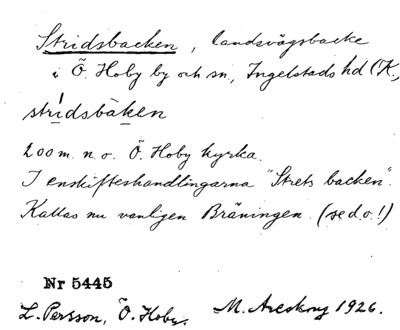 Stridsbacken, landsvägsbacke
i Ö. Hoby by och sn, Ingelstads hd (K,
strídsbàken
200 m. n. o. Ö. Hoby kyrka.
I enskifteshandlingarna "Strets backen".
Kallas nu vanligen Bräningen. (se d. o.!)
Nr 5445
L. Persson, Ö. Hoby. M. Areskog 1926.